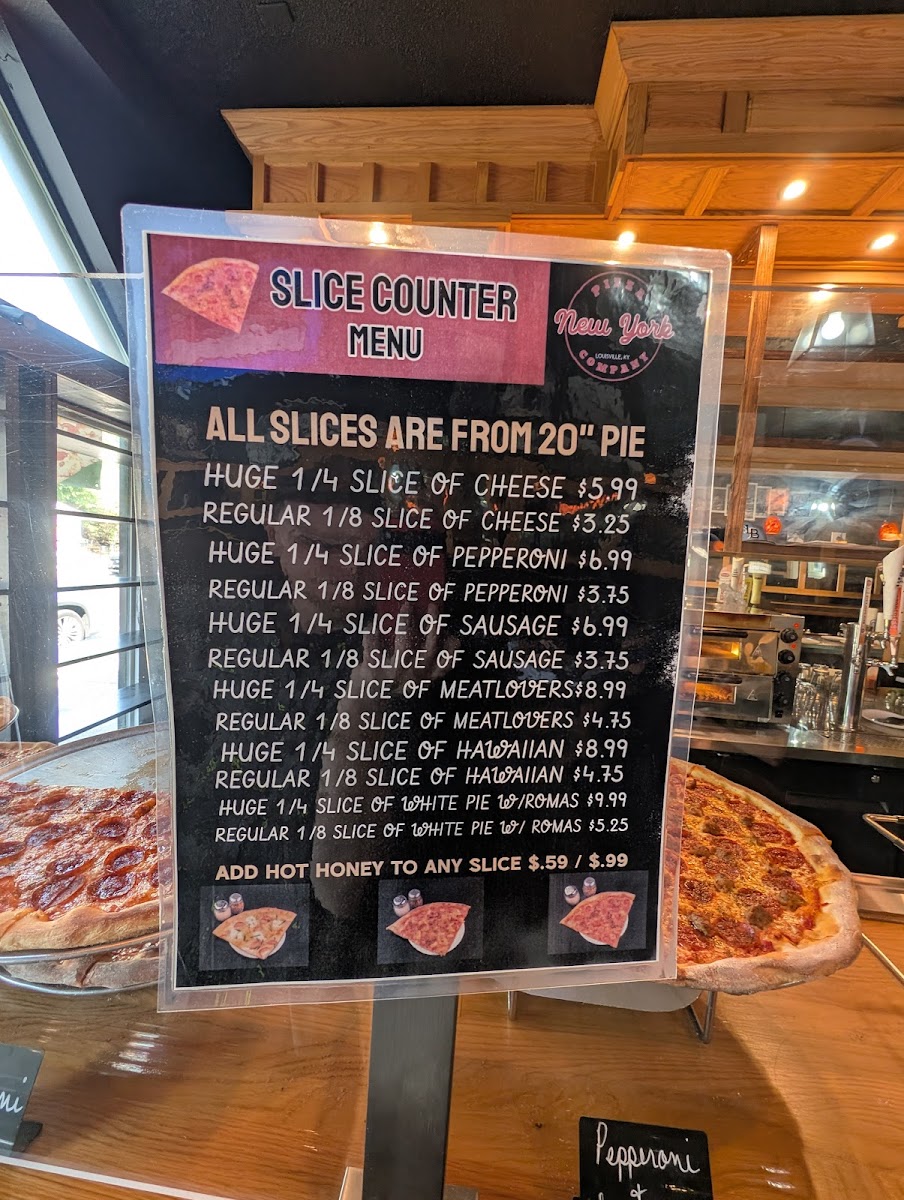 SLICE COUNTER
MENU
PIZZA
New York
LOUISVILLE, KY
COMPANY
ALL SLICES ARE FROM 20" PIE
HUGE 1/4 SLICE OF CHEESE $5.99
REGULAR 1/8 SLICE OF CHEESE $3.25
HUGE 1/4 SLICE OF PEPPERONI $6.99
REGULAR 1/8 SLICE OF PEPPERONI $3.75
HUGE 1/4 SLICE OF SAUSAGE $6.99
REGULAR 1/8 SLICE OF SAUSAGE $3.75
HUGE 1/4 SLICE OF MEATLOVERS$8.99
REGULAR 1/8 SLICE OF MEATLOVERS $4.75
HUGE 1/4 SLICE OF HAWAIIAN $8.99
REGULAR 1/8 SLICE OF HAWAIIAN $4.75
HUGE 1/4 SLICE OF WHITE PIE W/ROMAS $9.99
REGULAR 1/8 SLICE OF WHITE PIE W/ ROMAS $5.25
ADD HOT HONEY TO ANY SLICE $.59 / $.99
Pepperoni